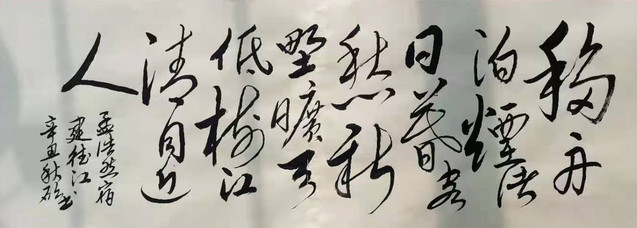 移舟
泊煙渚
日暮客
愁新
野曠天
低樹江
清月近
人
孟浩然宿
建德江
辛丑秋书